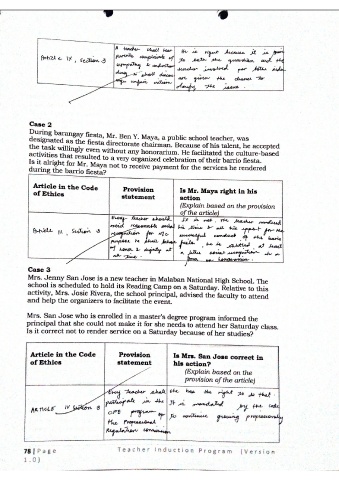 Article IX, Section 3
A teacher shall hear
parents complaints of
sympathy &
shall discou
unfair criticism
He is right because it is
the question and the
teacher involved
are given the chance to
clarify the issue.
Case 2
During barangay fiesta, Mr. Ben Y. Maya, a public school teacher, was
designated as the fiesta directorate chairman. Because of his talent, he accepted
the task willingly even without any honorarium. He facilitated the culture-based
activities that resulted to a very organized celebration of their barrio fiesta.
Is it alright for Mr. Maya not to receive payment for the services he rendered
during the barrio fiesta?
Article in the Code
of Ethics
Provision
statement
Is Mr. Maya right in his
action
(Explain based on the provision
of the article)
Article III, Section 3
Every teacher should
recognition
The teacher rendered
his time & all his effort for the
successful conduct of the barrio
fiesta. he is
social recognition
or honorarium.
Case 3
Mrs. Jenny San Jose is a new teacher in Malaban National High School. The
school is scheduled to hold its Reading Camp on a Saturday. Relative to this
activity, Mrs. Josie Rivera, the school principal, advised the faculty to attend
and help the organizers to facilitate the event.
Mrs. San Jose who is enrolled in a master's degree program informed the
principal that she could not make it for she needs to attend her Saturday class.
Is it correct not to render service on a Saturday because of her studies?
Article in the Code
of Ethics
Provision
Statement
Is Mrs. San Jose correct in
his action?
(Explain based on the
provision of the article)
ARTICLE IV Section 3
Every teacher shall
participate in the
CPE program of
the Professional
Regulation commission
she has the right to do that.
It is mandated by the code
to continue growing professionally
78 | Page
Teacher Induction Program (Version
1.0)